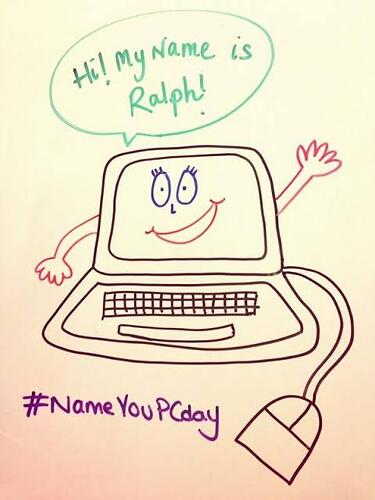 Hi! My Name is
Ralph!
#NameYouPCday